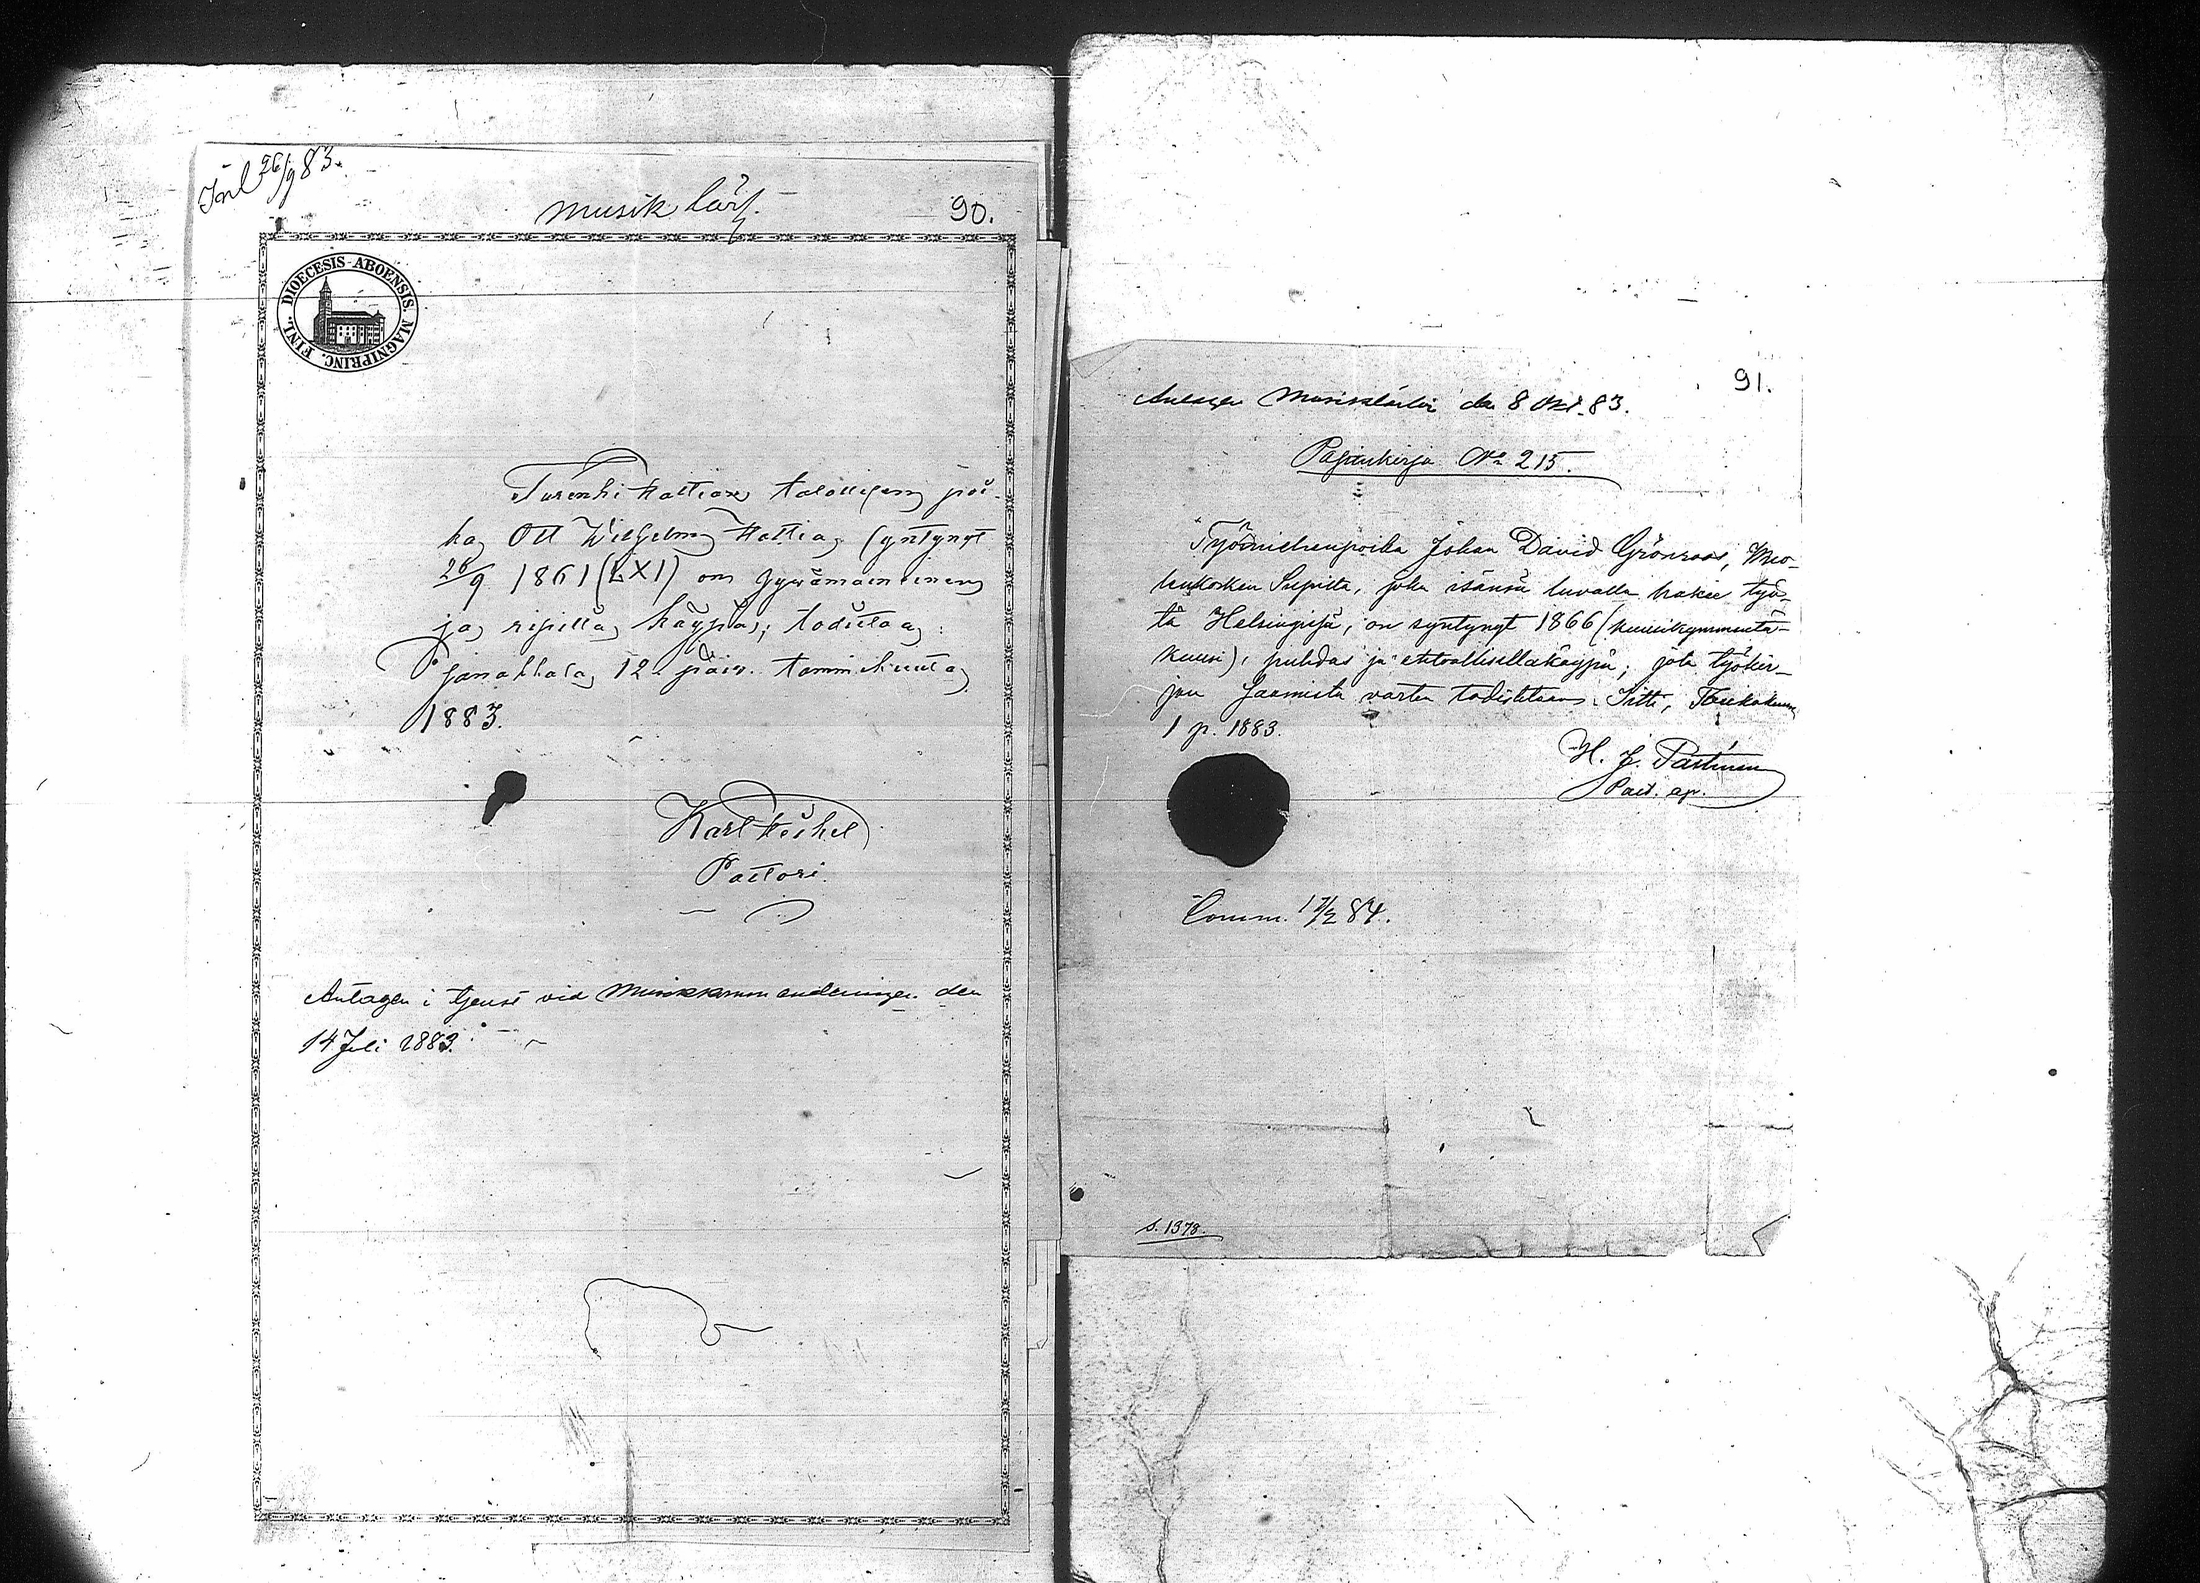 Inl 26/9 83.
Musik lärl.
90.
DIOECESIS ABOENSIS MAGNIPRINC. FINL.
Turenki Kattian talollisen poi-
ka Ott Wilhelm Kattia (syntynyt
26/9 1861 (LXI) on hywämaineinen
ja ripillä käypä; todistaa:
Janakkala 12 päiv. tammikuuta
1883.
Karl
Pastori.
Antagen i tjenst vid Musikkommenderingen den
14 Juli 1883.
91.
Antagen Musiklärling den 8 Okt. 83.
Papinkirja No 215.
Työmiehenpoika Johan David Grönroos,
joka isänsä luvalla hakee työ-
tä Helsingissä, on syntynyt 1866 (kuusikymmentä-
kuusi), puhdas ja ehtoollisella käypä; jota työkir-
jan saamista varten todistetaan. Sitti, Toukokuun
1 p. 1883.
H. J.
Past. ap.
Comm. 17/2 84.
S. 1378.